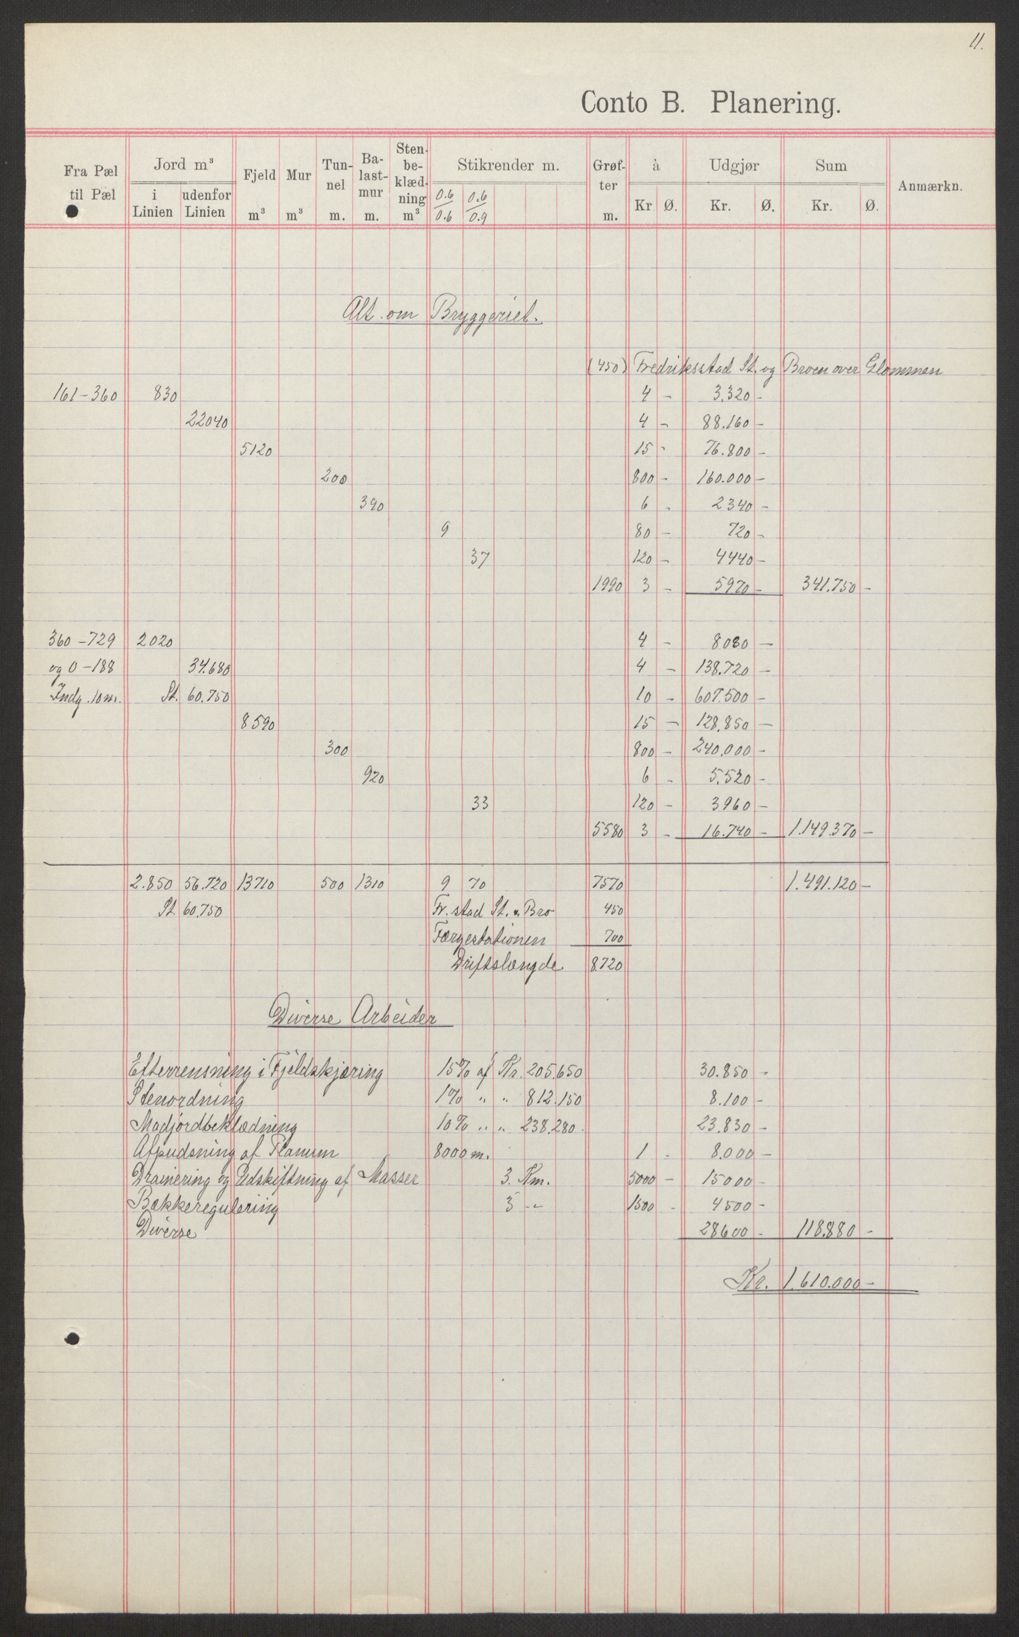 11.
Conto B. Planering.
Fra Pæl til Pæl | Jord m³ i Linien | udenfor Linien | Fjeld m³ | Mur m³ | Tun-nel m. | Ba-last-mur m. | Sten-be-klæd-ning m³ | Stikrender m. 0.6/0.6 | 0.6/0.9 | Grøf-ter m. | à Kr Ø. | Udgjør Kr. Ø. | Sum Kr. Ø. | Anmærkn.
Alt. om Bryggeriet.
(450) Fredriksstad St. og Broen over Glommen
161-360 830 4 - 3.320 -
22040 4 - 88.160 -
5120 15 - 76.800 -
200 800 - 160.000 -
390 6 - 2340 -
9 80 - 720 -
37 120 - 4440 -
1990 3 - 5970 - 341.750 -
360-729 2020 4 - 8080 -
og 0-188 34.680 4 - 138.720 -
Indg. 10 m. St. 60.750 10 - 607.500 -
8590 15 - 128.850 -
300 800 - 240.000 -
920 6 - 5.520 -
33 120 - 3960 -
5580 3 - 16.740 - 1.149.370 -
2.850 56.720 13710 500 1310 9 70 7570 1.491.120 -
St. 60.750 Fr.stad St. & Bro 450
Færgestationen 700
Driftslængde 8720
Diverse Arbeider
Efterrensning i Fjeldskjæring 15% af Kr. 205.650 30.850 -
Stenordning 1% " " 812.150 8.100 -
Madjordbeklædning 10% " " 238.280 - 23.830 -
Afpudsning af Planum 8000 m. 1 - 8.000 -
Drainering og Udskiftning af Masser 3. Km. 5000 - 15000 -
Bækkeregulering 3 " 1500 - 4500 -
Diverse 28600 - 118.880 -
Kr. 1.610.000 -